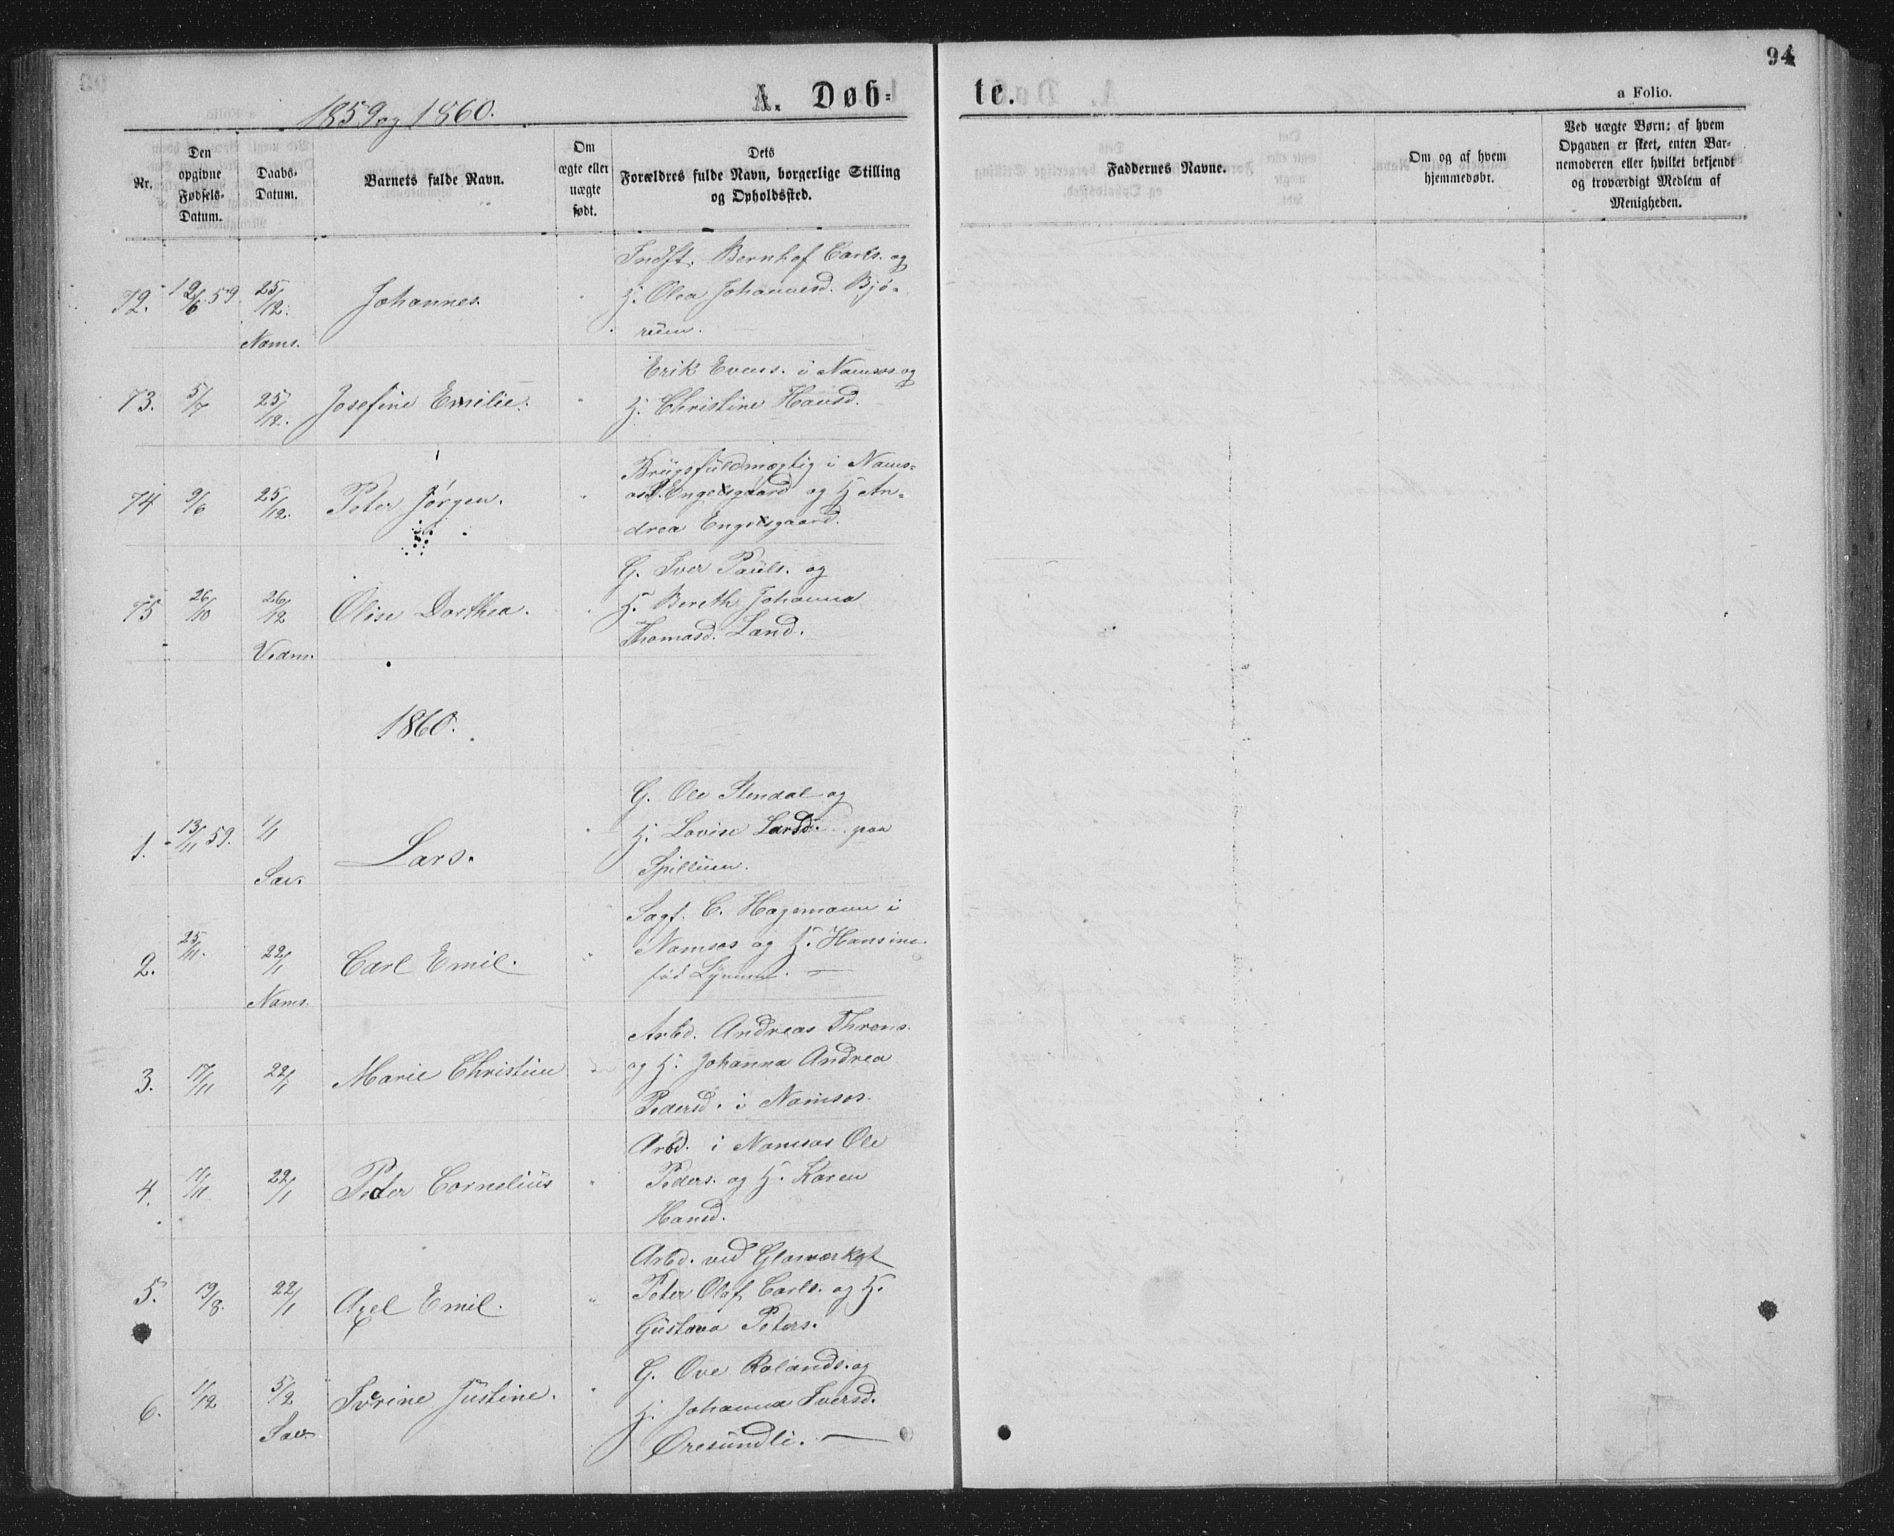 94
1859 og 1860.
A. Døb-
te.
a Folio.
Nr.
Den opgivne Fødsels-Datum.
Daabs-Datum.
Barnets fulde Navn.
Om ægte eller uægte født.
Dets Forældres fulde Navn, borgerlige Stilling og Opholdssted.
Faddernes Navne.
Om og af hvem hjemmedøbt.
Ved uægte Børn: af hvem Opgaven er skeet, enten Barnemoderen eller hvilket bekjendt og troværdigt Medlem af Menigheden.
Indst. Bernhof Carls. og
72. 12/6 59 25/12. Johannes. " H. Olea Johannesd. Bjø-
Nams. rum.
Erik Evens. i Namsos og
73. 5/7 25/12. Josefine Emilie. " H. Christine Hansd.
Brugsfuldmægtig i Nams-
74 9/6 25/12. Peter Jørgen. " os P. Engelsgaard og H An-
drea Engelsgaard.
G. Iver Pauls. og
75 26/10 26/12 Olise Dorthea. " H. Bereth Johanna
Vedm. Thomasd. Land.
1860.
G. Ole Stendal og
1. 13/11 59. 1/1 Lars. " H. Lovise Larsd. paa
Sav. Spillum.
Sagf. C. Hagemann i
2. 25/11. 22/1 Carl Emil. " Namsos og H. Hansine
Nams. fød Lynum.
Arbd. Andreas Throns.
3. 17/11 22/1 Marie Christine og H. Johanna Andrea
Pedersd. i Namsos.
Arbd. i Namsos Ole
4. 11/11 22/1 Peter Cornelius " Peders. og H. Karen
Hansd.
Arbd. ved Glasværket
5. 19/8. 22/1 Axel Emil. " Peter Olof Carls. og H.
Gustava Peters.
G. Ove Rolands. og
6. 1/12 5/2 Iverine Justine. " H. Johanna Iversd.
Sav. Øresundli.